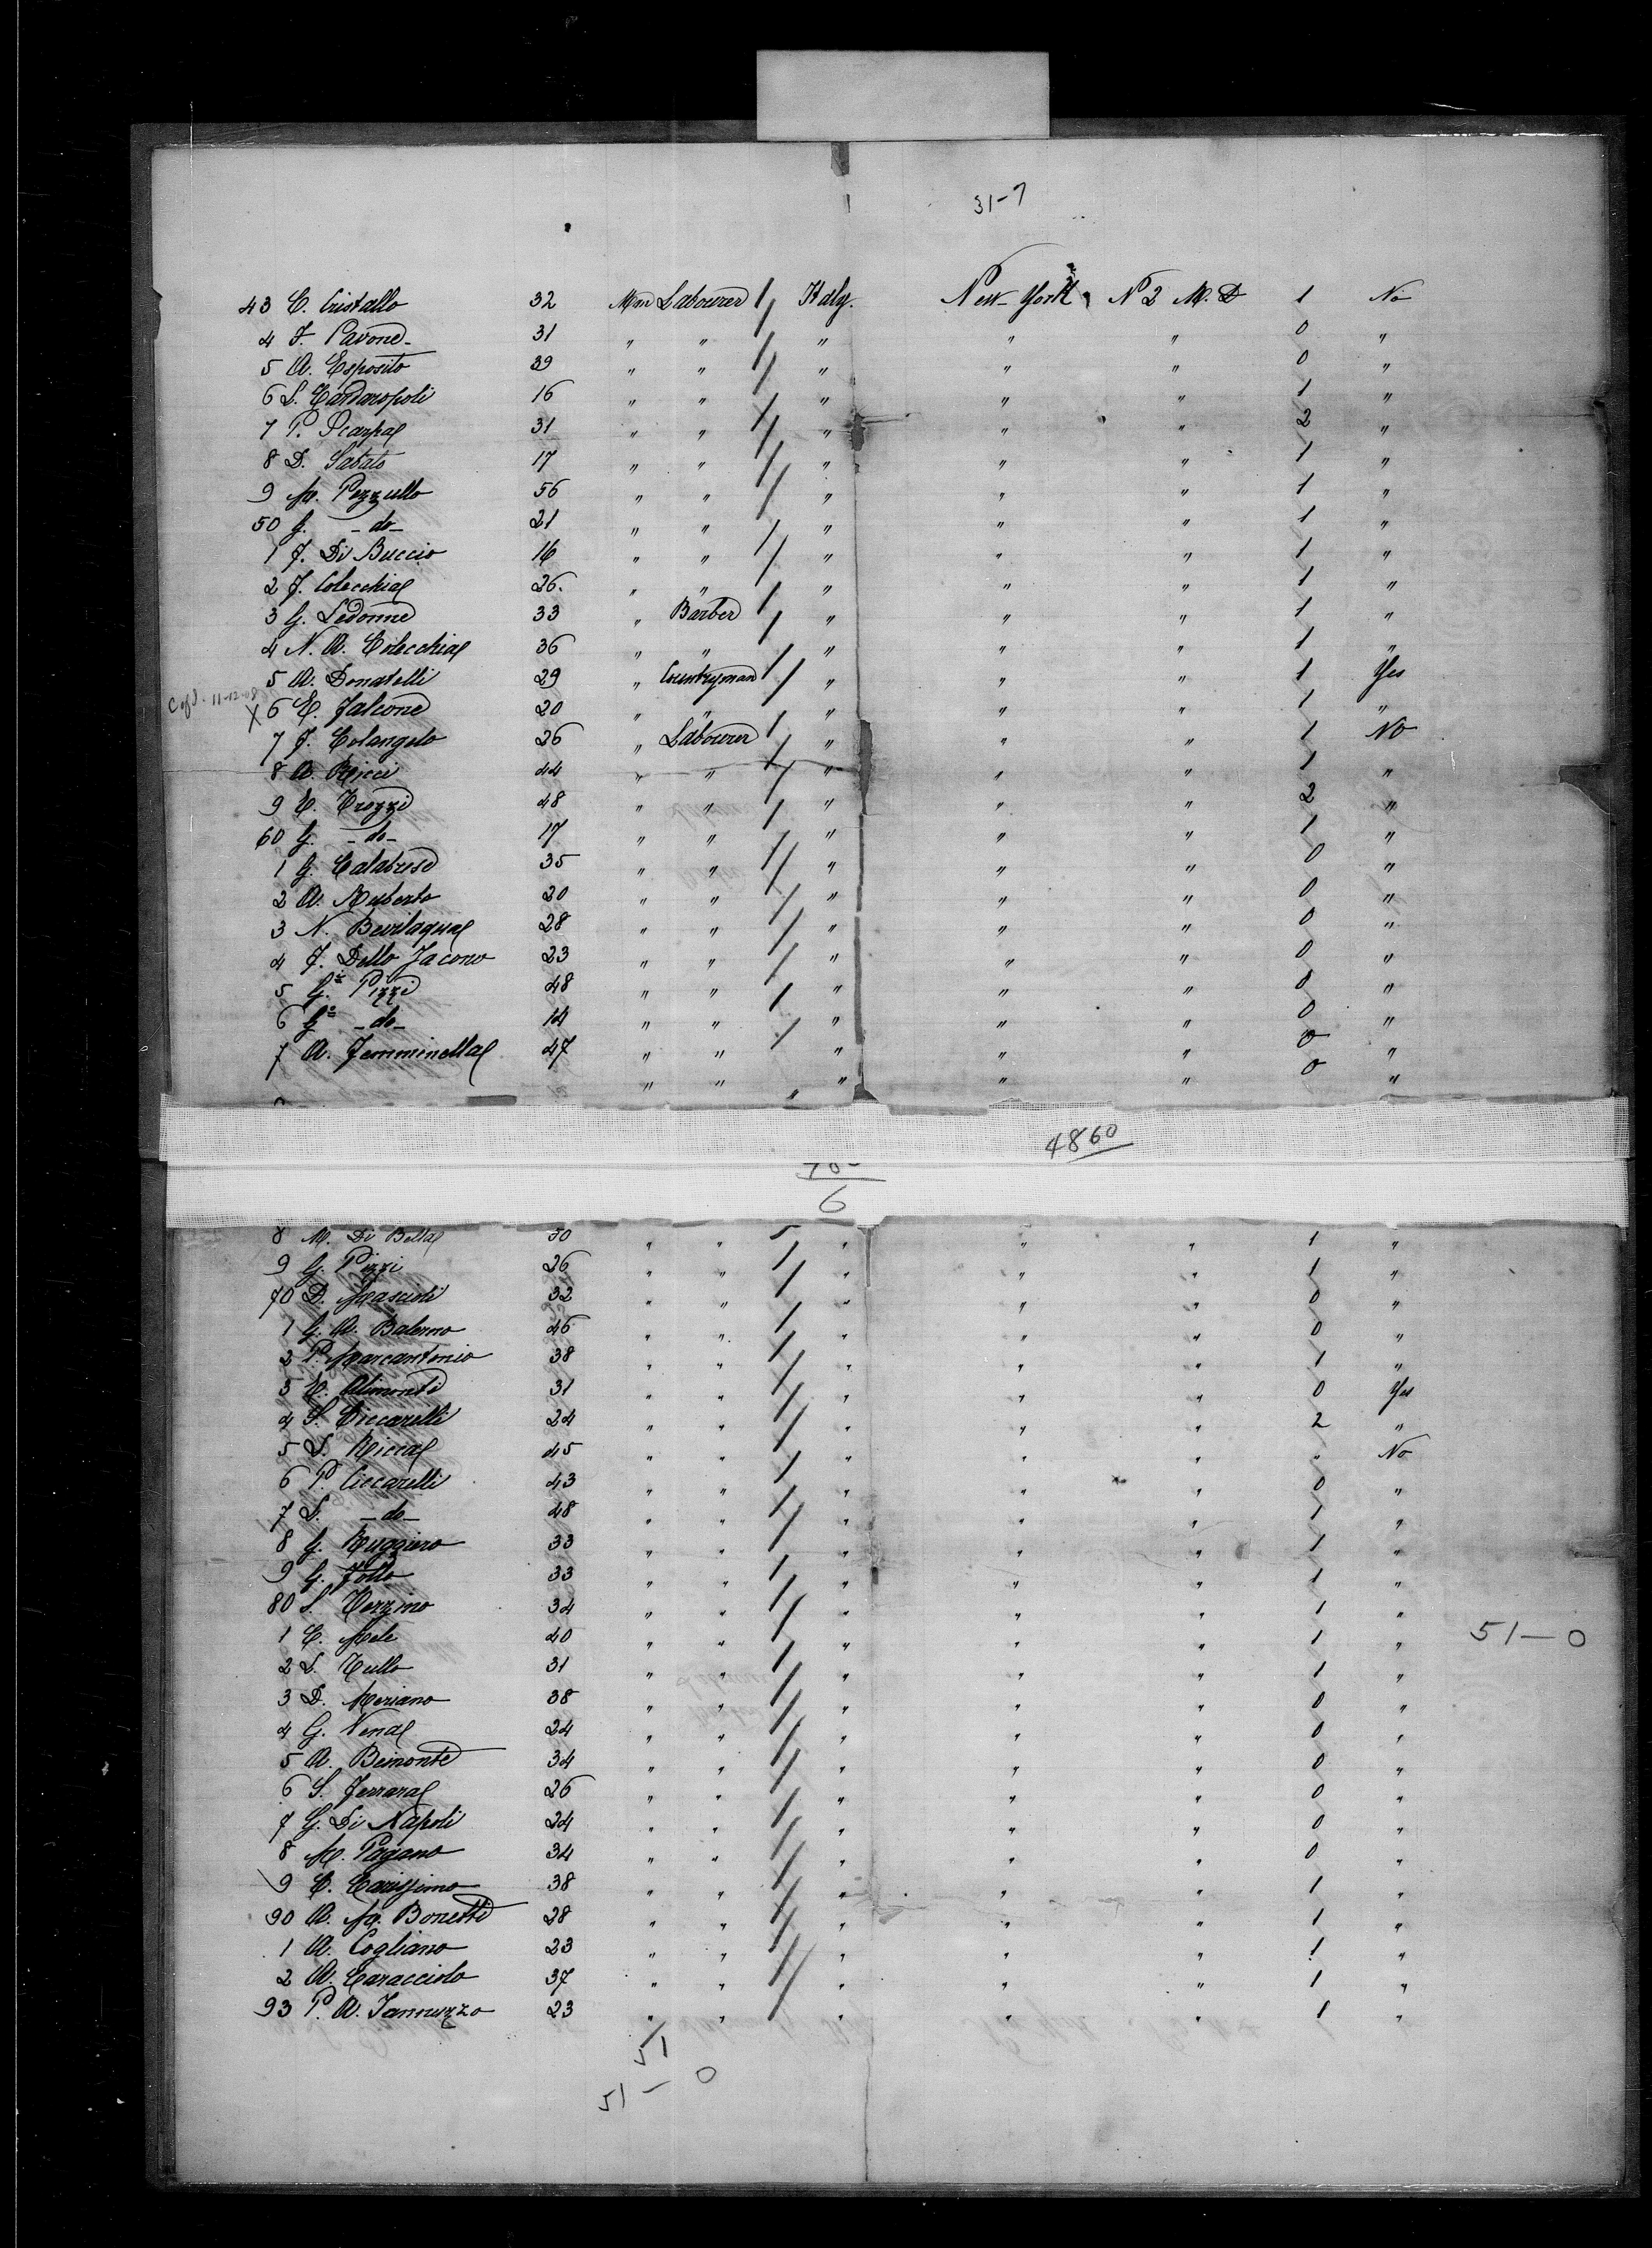 31-7
43 C. Cristallo 32 Man Labourer / Italy. New-York N 2 M. D 1 No
4 F. Pavone 31 " " / " " " 0 "
5 A. Esposito 39 " " / " " " 0 "
6 S. Cardaropoli 16 " " / " " " 1 "
7 P. Scarpa 31 " " / " " " 2 "
8 D. Sabato 17 " " / " " " 1 "
9 M. Pezzullo 56 " " / " " " 1 "
50 G. -do- 21 " " / " " " 1 "
1 F. Di Buccio 16 " " / " " " 1 "
2 F. Colecchia 26. " " / " " " 1 "
3 G. Ledonne 33 " Barber / " " " 1 "
4 N. A. Colecchia 36 " " / " " " 1 "
5 A. Donatelli 29 " Countryman / " " " 1 Yes
11-12-08 X 6 E. Falcone 20 " " / " " " 1 "
7 F. Colangelo 26 " Labourer / " " " 1 No
8 A. Ricci 44 " " / " " " 1 "
9 C. Trozzi 48 " " / " " " 2 "
60 G. -do- 17 " " / " " " 1 "
1 G. Calabrese 35 " " / " " " 0 "
2 A. Ruberto 20 " " / " " " 0 "
3 N. Bevilaqua 28 " " / " " " 0 "
4 F. Dello Jacono 23 " " / " " " 0 "
5 G. Pizzi 48 " " / " " " 0 "
6 G. -do- 14 " " / " " " 0 "
7 A. Femminella 47 " " " " " 0 "
" " " " " 0 "
4860
6
8 M. Di Bella 30 " " / " " " 1 "
9 G. Pizzi 26 " " / " " " 1 "
70 D. Mascioli 32 " " / " " " 0 "
1 G. A. Balerno 46 " " / " " " 0 "
2 P. Marcantonio 38 " " / " " " 1 "
3 E. Alimonti 31 " " / " " " 0 Yes
4 S. Ciccarelli 24 " " / " " " 2 "
5 S. Ricca 45 " " / " " " " No
6 P. Ciccarelli 43 " " / " " " 0 "
7 S. -do- 48 " " / " " " 1 "
8 G. Ruggiero 33 " " / " " " 1 "
9 G. Jollo 33 " " / " " " 1 "
80 S. Terzino 34 " " / " " " 1 "
1 C. Mele 40 " " / " " " 1 " 51-0
2 S. Tullo 31 " " / " " " 1 "
3 D. Meriano 38 " " / " " " 0 "
4 G. Nena 24 " " / " " " 0 "
5 A. Beimonte 34 " " / " " " 0 "
6 S. Ferrara 26 " " / " " " 0 "
7 G. Di Napoli 24 " " / " " " 0 "
8 M. Pagano 34 " " / " " " 0 "
9 C. Carissimo 38 " " / " " " 1 "
90 A. M. Bonetti 28 " " / " " " 1 "
1 A. Cogliano 23 " " / " " " 1 "
2 A. Caracciolo 37 " " / " " " 1 "
93 P. A. Iannuzzo 23 " " / " " " 1 "
51
51-0